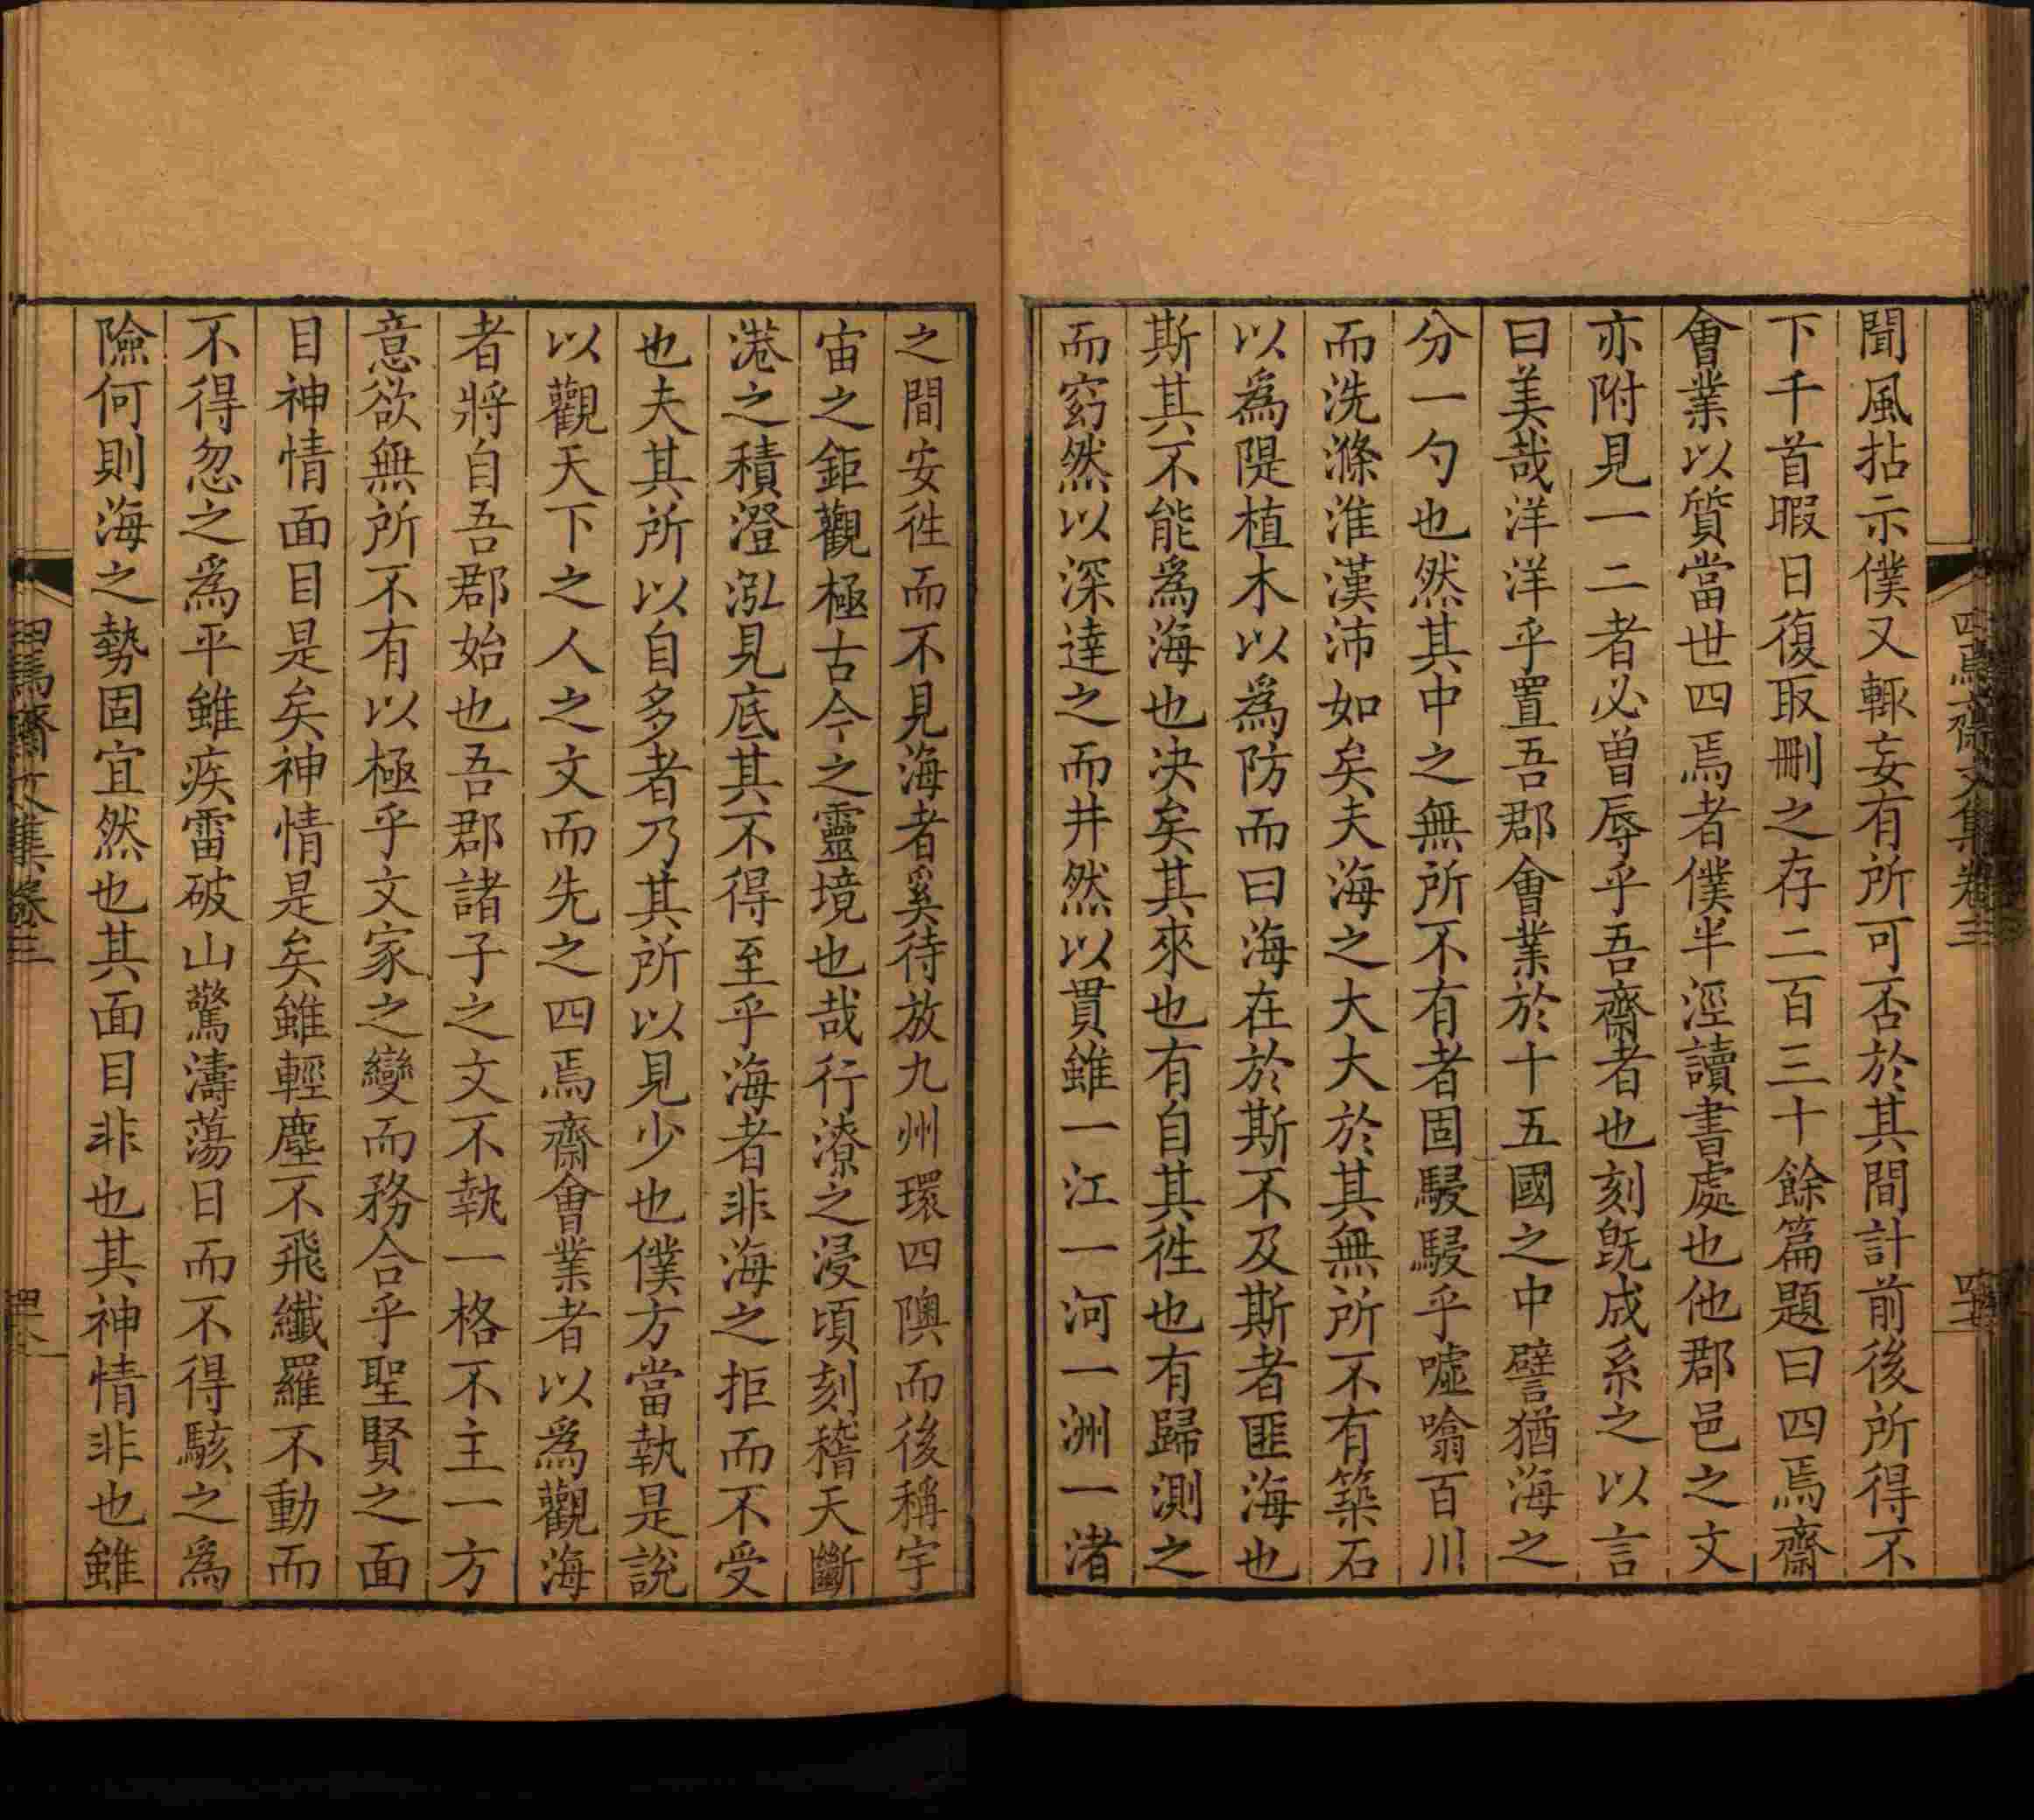 聞風拈示僕又輒妄有所可否於其間計前後所得不
下千首暇日復取刪之存二百三十餘篇題曰四焉齋
會業以質當世四焉者僕半涇讀書處也他郡邑之文
亦附見一二者必曽辱乎吾齋者也刻旣成系之以言
曰美哉洋洋乎置吾郡會業於十五國之中譬猶海之
分一勺也然其中之無所不有者固駸駸乎噓噏百川
而洗滌淮漢沛如矣夫海之大大於其無所不有築石
以為隄植木以為防而曰海在於斯不及斯者匪海也
斯其不能為海也决矣其來也有自其徃也有歸測之
而窈然以深達之而井然以貫雖一江一河一洲一渚
四焉齋文集卷三
之間安徃而不見海者奚待放九州環四隩而後稱宇
宙之鉅觀極古今之靈境也哉行潦之浸頃刻稽天斷
港之積澄泓見底其不得至乎海者非海之拒而不受
也夫其所以自多者乃其所以見少也僕方當執是説
以觀天下之人之文而先之四焉齋會業者以為觀海
者將自吾郡始也吾郡諸子之文不執一格不主一方
意欲無所不有以極乎文家之變而務合乎聖賢之面
目神情面目是矣神情是矣雖輕塵不飛纖羅不動而
不得忽之為平雖疾雷破山驚濤蕩日而不得駭之為
險何則海之勢固宜然也其面目非也其神情非也雖
四焉齋文集卷三